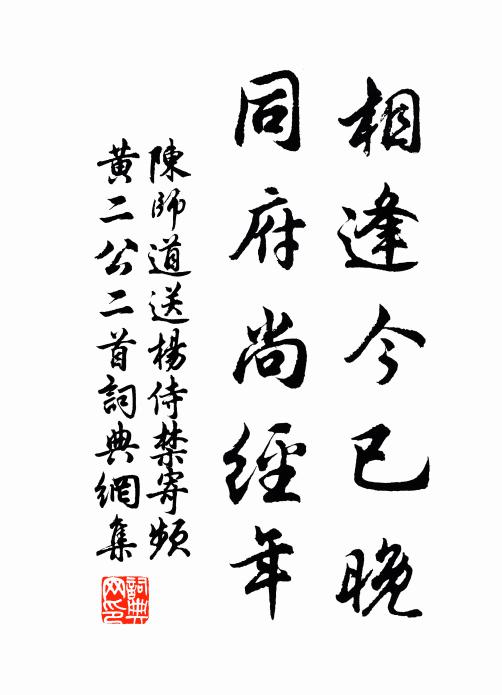 相逢今已晚
同府尚經年
陳師道送楊侍禁寄頻
黃二公二首詞典網集